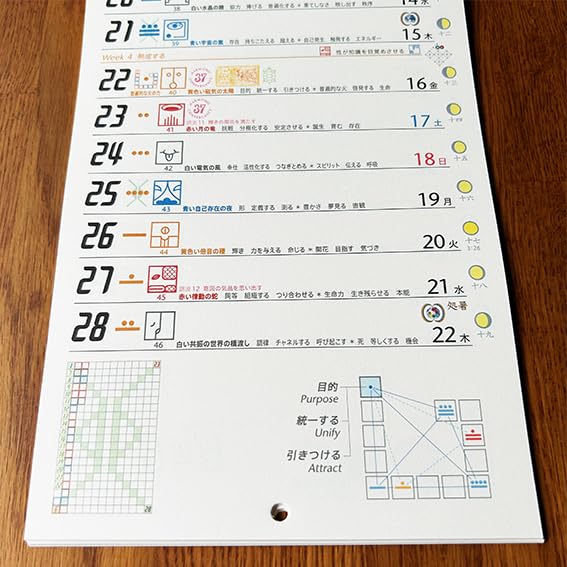 38 白い水晶の鏡 協力 捧げる 普遍化する * 果てしなさ 映し出す 秩序
14 水
21 39 青い宇宙の嵐 存在 持ちこたえる 超える * 自己発生 触発する エネルギー 15 木 十二
Week 4 熟成する 性が知識を目覚めさせる
22 普遍的な火のさ 40 黄色い磁気の太陽 目的 統一する 引きつける * 普遍的な火 啓発する 生命 16 金 十三
37
23 調波11 輝きの電荷を満たす
41 赤い月の竜 挑戦 分極化する 安定させる * 誕生 育む 存在 17 土 十四
37
24 42 白い電気の風 奉仕 活性化する つなぎとめる * スピリット 伝える 呼吸 18 日 十五
25 43 青い自己存在の夜 形 定義する 測る * 豊かさ 夢見る 直観 19 月 十六
26 44 黄色い倍音の種 輝き 力を与える 命じる * 開花 目指す 気づき 20 火 十七 3:26
27 調波12 意図の気品を思い出す
45 赤い律動の蛇 同等 組織する つり合わせる * 生命力 生き残らせる 本能 21 水 十八
処暑
28 46 白い共振の世界の橋渡し 調律 チャネルする 呼び起こす * 死 等しくする 機会 22 木 十九
23
28
目的
Purpose
統一する
Unify
引きつける
Attract